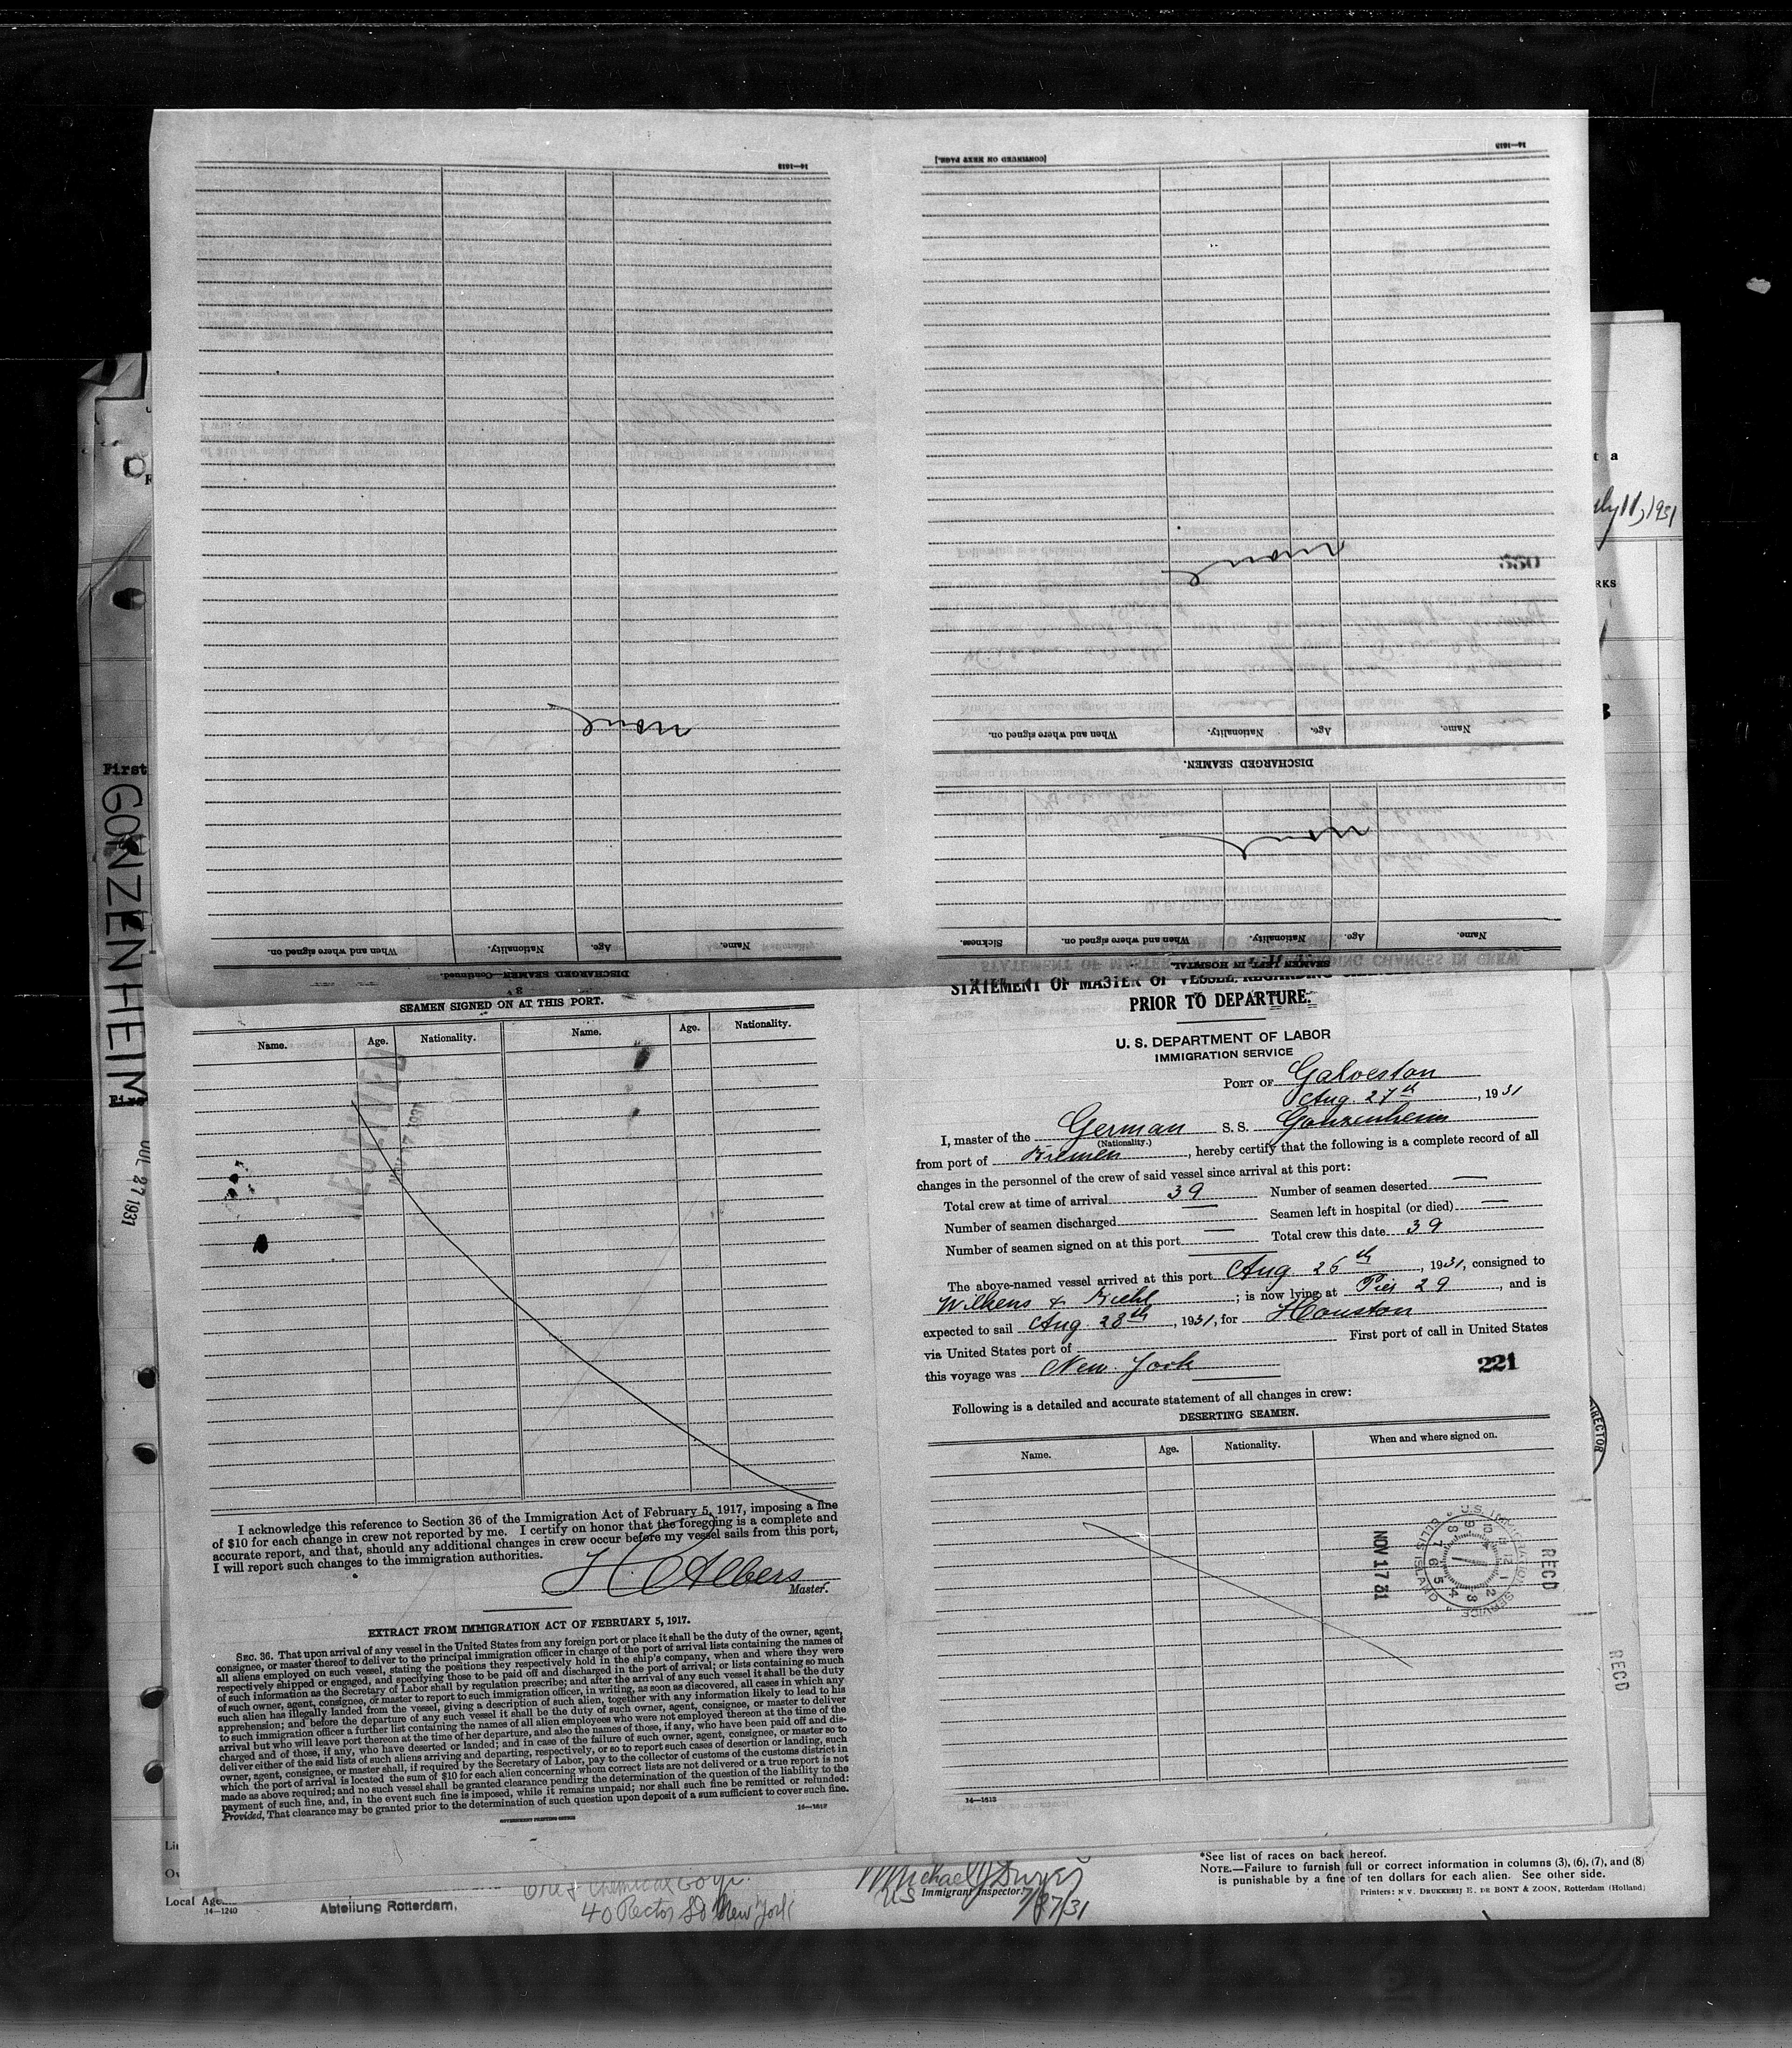 14—1613
14—1613
[CONTINUED ON NEXT PAGE.]
none
none
none
Name.
Age.
Nationality.
When and where signed on.
DISCHARGED SEAMEN.
Name.
Age.
Nationality.
When and where signed on.
Sickness.
SEAMEN LEFT IN HOSPITAL.
Name.
Age.
Nationality.
When and where signed on.
DISCHARGED SEAMEN—Continued.
3
SEAMEN SIGNED ON AT THIS PORT.
Name.
Age.
Nationality.
Name.
Age.
Nationality.
I acknowledge this reference to Section 36 of the Immigration Act of February 5, 1917, imposing a fine
of $10 for each change in crew not reported by me. I certify on honor that the foregoing is a complete and
accurate report, and that, should any additional changes in crew occur before my vessel sails from this port,
I will report such changes to the immigration authorities.
H Albers
Master.
EXTRACT FROM IMMIGRATION ACT OF FEBRUARY 5, 1917.
SEC. 36. That upon arrival of any vessel in the United States from any foreign port or place it shall be the duty of the owner, agent,
consignee, or master thereof to deliver to the principal immigration officer in charge of the port of arrival lists containing the names of
all aliens employed on such vessel, stating the positions they respectively hold in the ship's company, when and where they were
respectively shipped or engaged, and specifying those to be paid off and discharged in the port of arrival; or lists containing so much
of such information as the Secretary of Labor shall by regulation prescribe; and after the arrival of any such vessel it shall be the duty
of such owner, agent, consignee, or master to report to such immigration officer, in writing, as soon as discovered, all cases in which any
such alien has illegally landed from the vessel, giving a description of such alien, together with any information likely to lead to his
apprehension; and before the departure of any such vessel it shall be the duty of such owner, agent, consignee, or master to deliver
to such immigration officer a further list containing the names of all alien employees who were not employed thereon at the time of the
arrival but who will leave port thereon at the time of her departure, and also the names of those, if any, who have been paid off and dis-
charged and of those, if any, who have deserted or landed; and in case of the failure of such owner, agent, consignee, or master so to
deliver either of the said lists of such aliens arriving and departing, respectively, or so to report such cases of desertion or landing, such
owner, agent, consignee, or master shall, if required by the Secretary of Labor, pay to the collector of customs of the customs district in
which the port of arrival is located the sum of $10 for each alien concerning whom correct lists are not delivered or a true report is not
made as above required; and no such vessel shall be granted clearance pending the determination of the question of the liability to the
payment of such fine, and, in the event such fine is imposed, while it remains unpaid; nor shall such fine be remitted or refunded:
Provided, That clearance may be granted prior to the determination of such question upon deposit of a sum sufficient to cover such fine.
GOVERNMENT PRINTING OFFICE
14—1613
STATEMENT OF MASTER OF VESSEL REGARDING
PRIOR TO DEPARTURE.
U. S. DEPARTMENT OF LABOR
IMMIGRATION SERVICE
PORT OF Galveston
Aug. 27th, 1931
I, master of the German S. S. Gonzenheim
(Nationality.)
from port of Bremen, hereby certify that the following is a complete record of all
changes in the personnel of the crew of said vessel since arrival at this port:
Total crew at time of arrival 39 Number of seamen deserted —
Number of seamen discharged — Seamen left in hospital (or died) —
Number of seamen signed on at this port — Total crew this date 39
The above-named vessel arrived at this port Aug 26th, 1931, consigned to
Wilkens & Biehl; is now lying at Pier 29, and is
expected to sail Aug. 28th, 1931, for Houston
via United States port of First port of call in United States
this voyage was New York
221
Following is a detailed and accurate statement of all changes in crew:
DESERTING SEAMEN.
Name.
Age.
Nationality.
When and where signed on.
REC'D
U.S. IMMIGRATION SERVICE
ELLIS ISLAND
NOV 17 31
14—1613
REC'D
RECEIVED
First
GONZENHEIM
First
JUL 27 1931
t a
July 11, 1931
RKS
DIRECTOR
Local Age
14—1240
Abteilung Rotterdam,
Ore & Chemical Corp.
40 Rector St New York
Michael J Dwyer
US Immigrant Inspector
7/27/31
*See list of races on back hereof.
NOTE.—Failure to furnish full or correct information in columns (3), (6), (7), and (8)
is punishable by a fine of ten dollars for each alien. See other side.
Printers: N.V. DRUKKERIJ E. DE BONT & ZOON, Rotterdam (Holland)